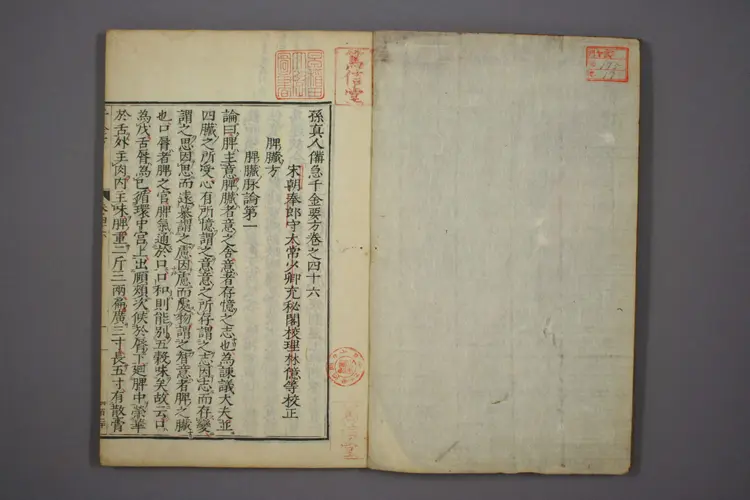 孫真人備急千金要方卷之四十六
宋朝奉郎守太常少卿充秘閣校理林億等校正
脾臟方
脾臟脉論第一
論曰脾主意脾臟者意之舍意者存憶之志也為諫議大夫並
四臟之所受心有所憶謂之意意之所存謂之志因志而存變
謂之思因思而遠慕謂之慮因慮而處物謂之智意者脾之臟
也口脣者脾之官脾氣通於口口和則能別五穀味矣故云口
為戊舌脣為己循環中宮上出頤頰次候於脣下廻脾中榮華
於舌外主肉內主味脾重二斤三兩扁廣三寸長五寸有散膏